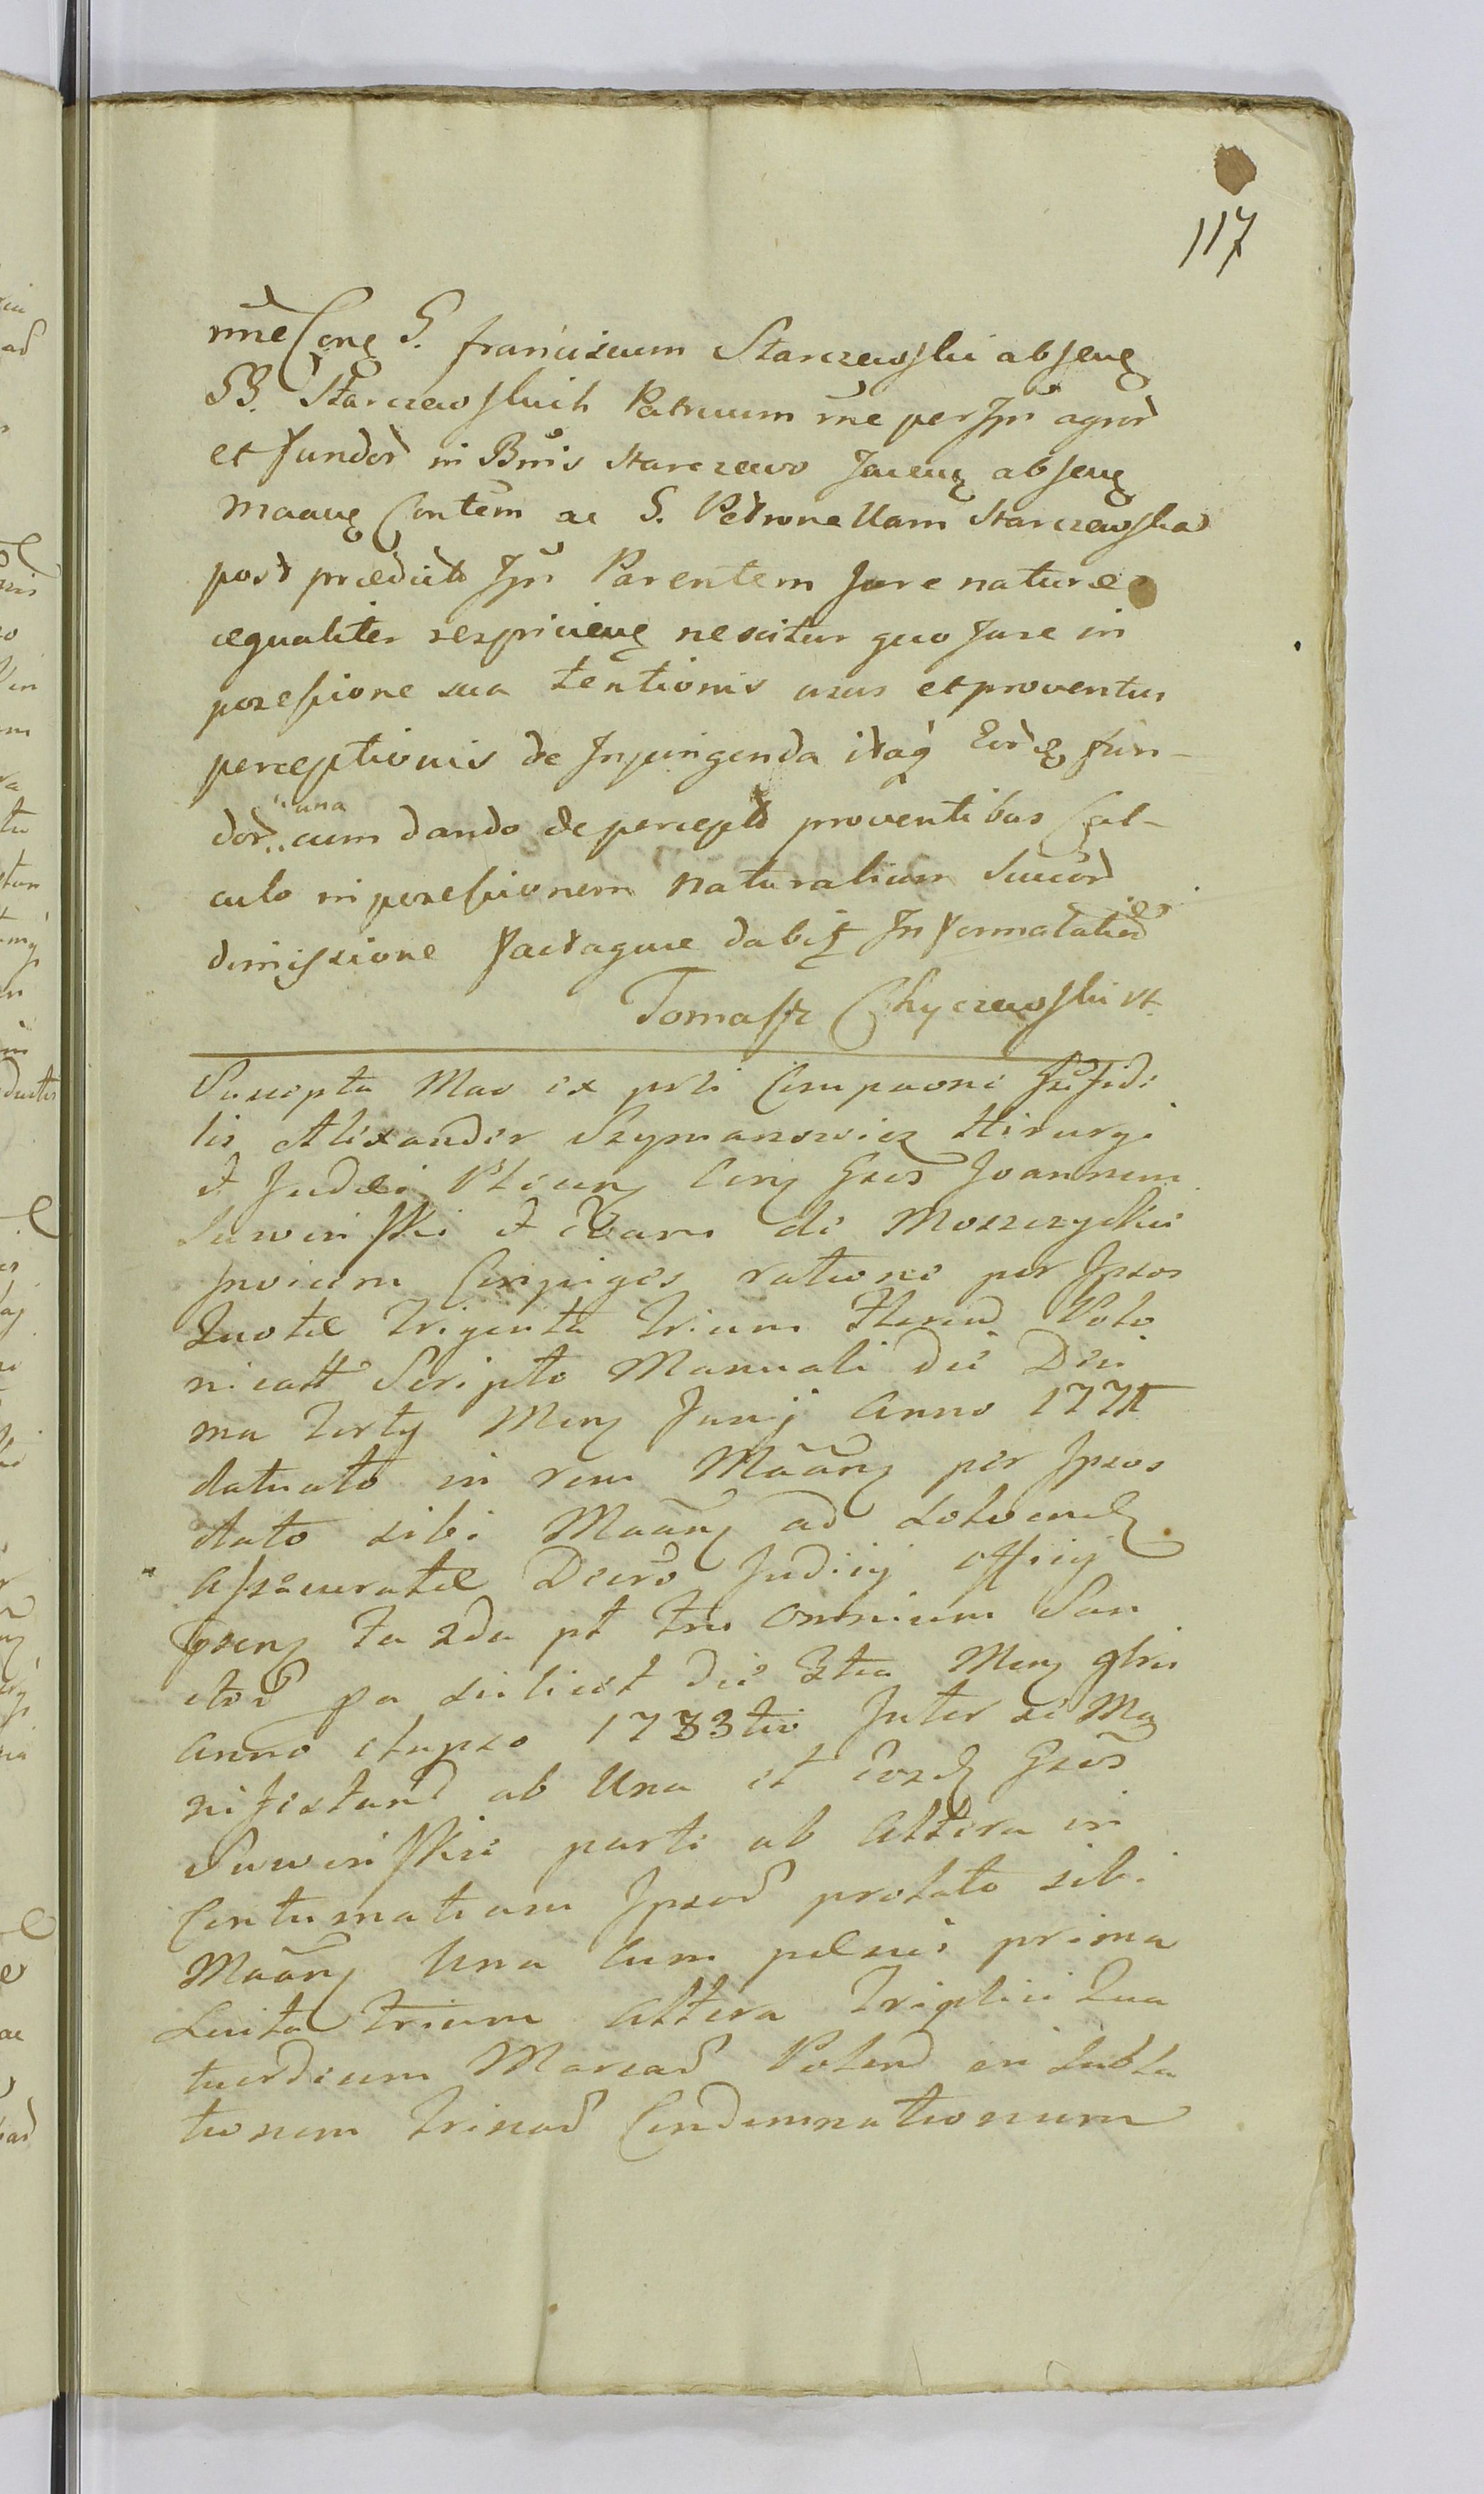 117
rne Cong G. Franciscum Starczewski abseng
GG. Starczewskich Patruum rne per Ipm agror
et fundor in Bonis Starczewo Jaceng abseng
Maang Contem ac G. Petronellam Starczewska
post prædict Ipm Parentem Jure naturæ
æqualiter respicieng nescitur quo Jure in
poressione sua tentionis usus et proventus
perceptionis de Injungenda itaq Eordg fun-
dor una cum dando de percept proventibus Cal-
culo in poressionem naturalium Succor
dimissione factaque dabit Informatated
Tomasz Chyczewski
Suscepta Mao ex prti Compaone Infidi
lis Alexander Szymanowicz Hirurgi
et Judæi Ploceng Cong Gsos Joannem
Suwinski et Claram de Moszczyckie
Invicem Conjuges ratione per Ipsos
Quotæ Triginta Trium flored Polo
nicall Scripto Manuali die Deci
ma Terty Meng Junij Anno 1771
datuato in rem Maang per Ipsos
dato sibi Maang ad Solvend
Assecuratæ Decro Judicij officij
Ipseng fa 2da pt ftm Omnium San
ctor pa scilicet die 3tia Meng 9bris
Anno elapso 1783tio Inter se Ma
nifestand ab Una et eosd Gsos
Suwinskie parte ab Altera in
Contumatiam Ipsor prolato sibi
Maang Una cum pænis prima
Luita Trium Altera Triplici Qua
tuordicum Marcar Polend in Subla
tionem Trinar Condemnationum